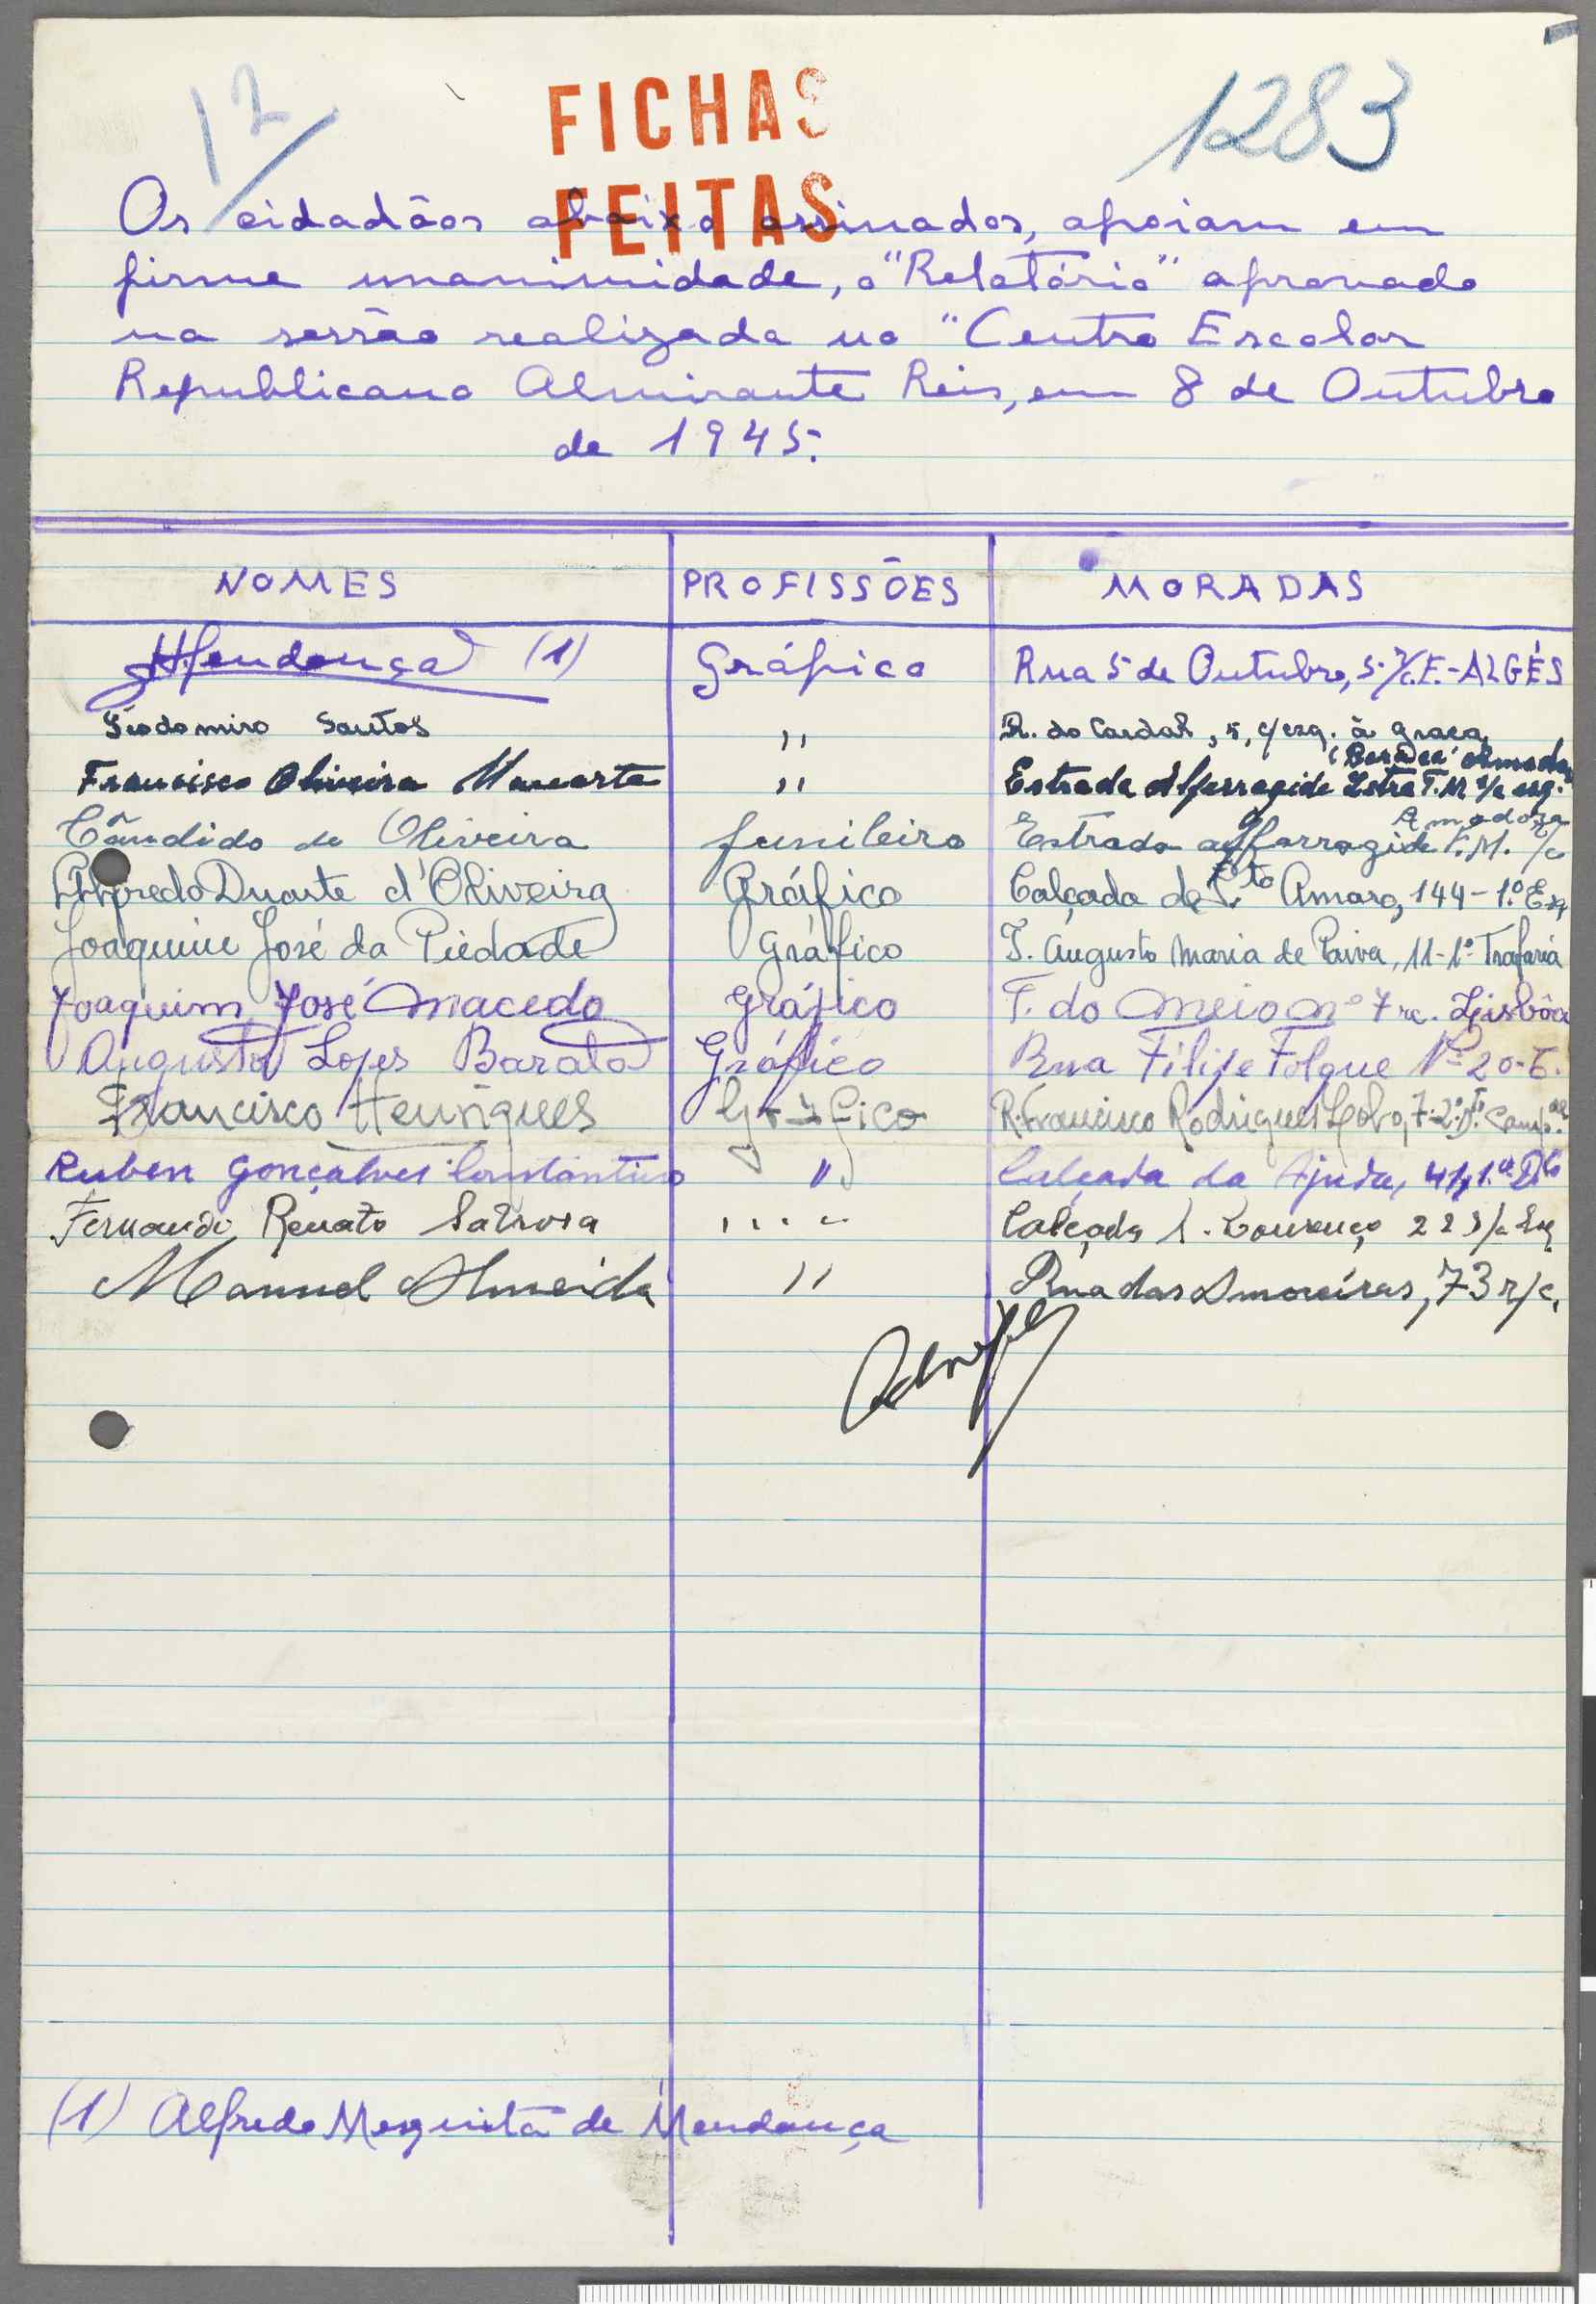 12
FICHAS
1283
FEITAS
Os cidadãos abaixo assinados, apoiam em
firme unanimidade, o "Relatório" aprovado
na sessão realizada no "Centro Escolar
Republicano Almirante Reis, em 8 de Outubro
de 1945:
NOMES PROFISSÕES MORADAS
Mendonça (1) Gráfico Rua 5 de Outubro, 5-r/c.E.-ALGÉS
Teodomiro Santos " R. do Cardal, 5, c/esq. à Graça
Francisco Oliveira " Estrada Alfarragide Letra T.M r/c esq.
Amadora
Cândido de Oliveira funileiro Estrada Alfarragide T.M. r/c
Alfredo Duarte d'Oliveira Gráfico Calçada de Sto Amaro, 144-1º Esq
Joaquim José da Piedade Gráfico T. Augusto Maria de Paiva, 11-1º Trafaria
Joaquim José Macedo Gráfico T. do Meio Nº 7 rc. Lisbôa
Augusto Lopes Barata Gráfico Rua Filipe Folque Nº 20-
Francisco Henriques Gráfico R. Francisco Rodrigues Lobo, 7-2º Dto
Ruben Gonçalves Constantino " Calçada da Ajuda, 1º Dto
Fernando Renato " Calçada S. Lourenço 22
Manuel Almeida " Rua das Amoreiras, 73 r/c,
(1) Alfredo Mesquita de Mendonça